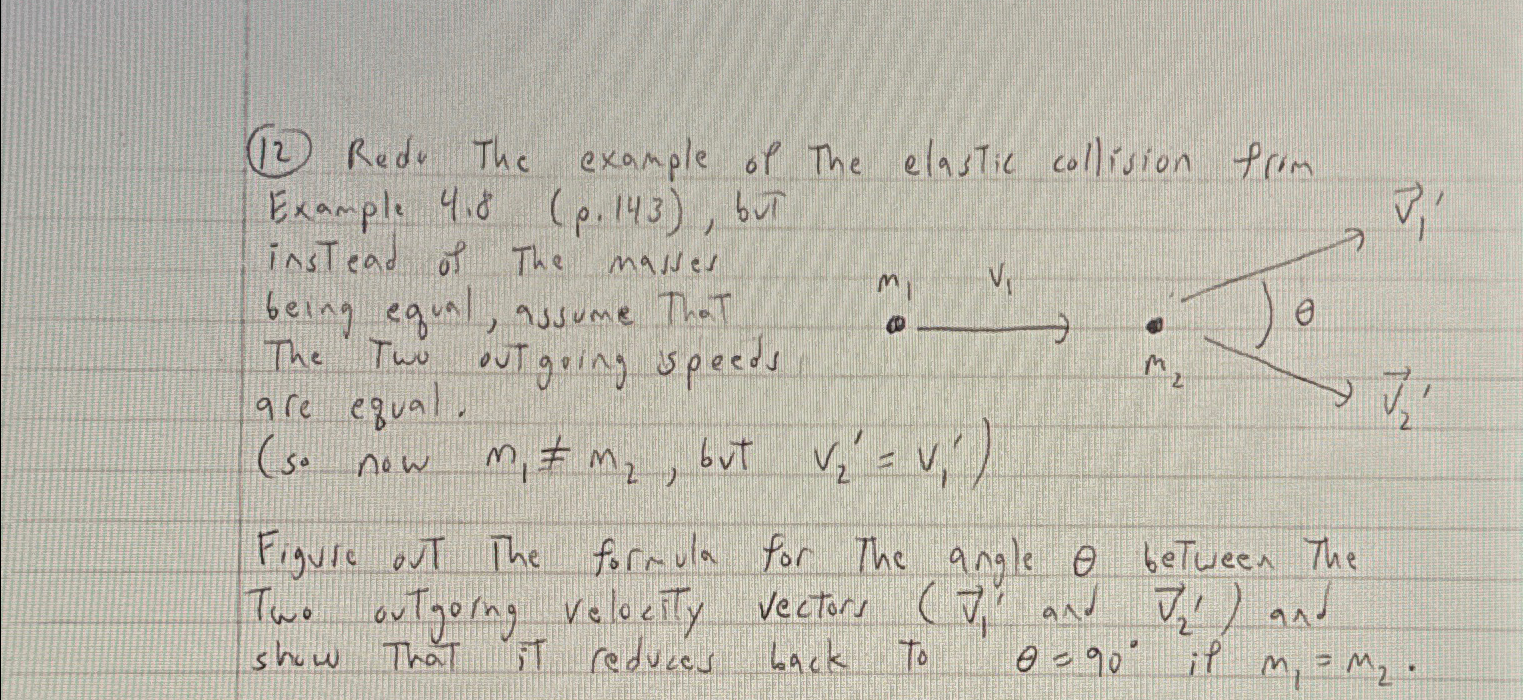 (12) Redo The example of The elastic collision from
Example 4.8 (p.143), but
instead of The masses
being equal, assume That
The Two outgoing speeds
are equal.
(so now m₁ ≠ m₂, but v₂' = v₁')
m₁ v₁
m₂
v⃗₁'
θ
v⃗₂'
Figure out The formula for The angle θ between The
Two outgoing velocity vectors (v⃗₁' and v⃗₂') and
show That it reduces back To θ = 90° if m₁ = m₂.